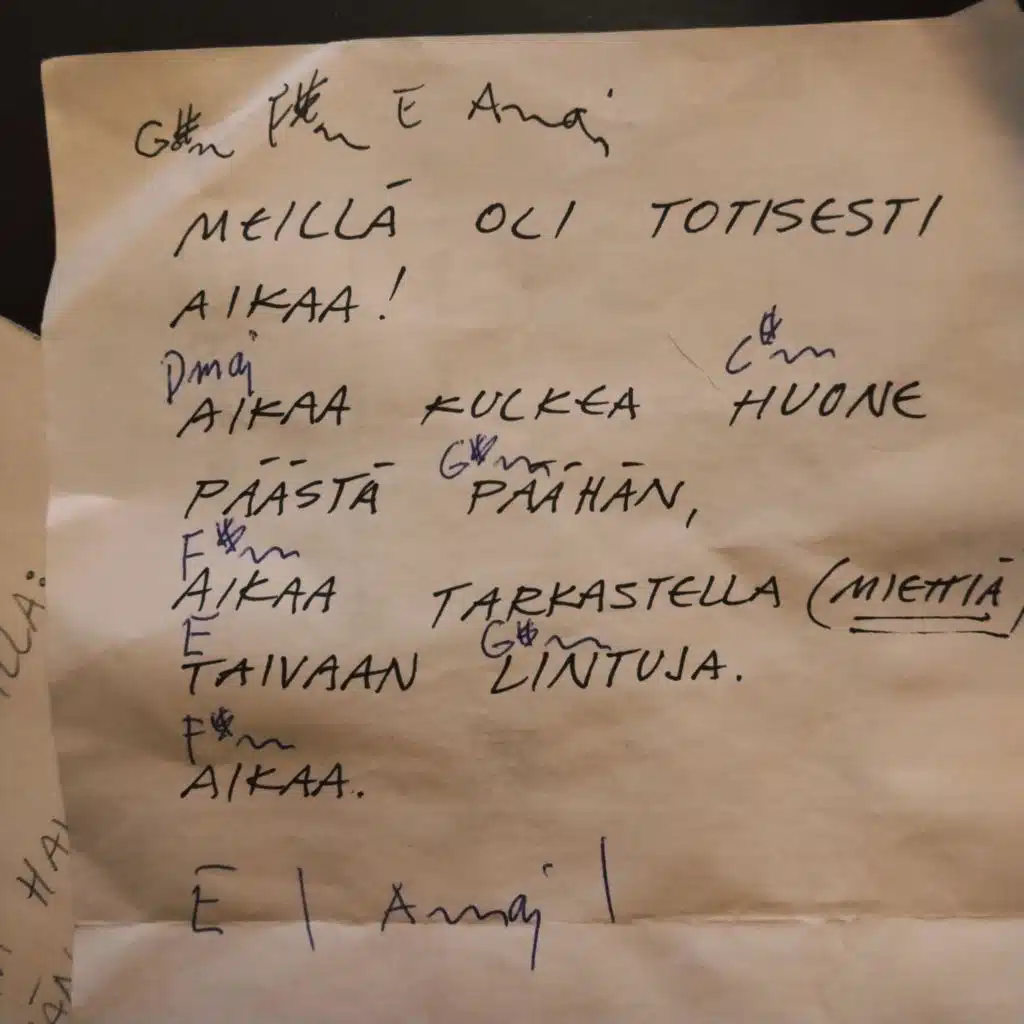 G#m F#m E Amaj
MEILLÄ OLI TOTISESTI
AIKAA!
Dmaj C#m
AIKAA KULKEA HUONE
G#m
PÄÄSTÄ PÄÄHÄN,
F#m
AIKAA TARKASTELLA (MIETTIÄ)
E G#m
TAIVAAN LINTUJA.
F#m
AIKAA.
E | Amaj |
ILLA:
HAI